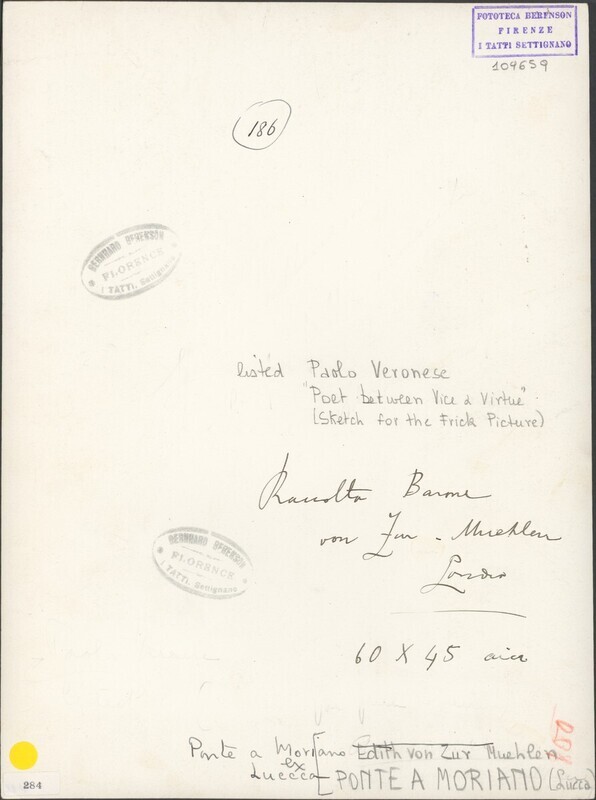 FOTOTECA BERENSON
FIRENZE
I TATTI SETTIGNANO
109659
186
BERNHARD BERENSON
FLORENCE
I TATTI. Settignano
listed Paolo Veronese
"Poet between Vice & Virtue"
(Sketch for the Frick Picture)
Raccolta Barone
von Zur - Muehlen
Londra
BERNHARD BERENSON
FLORENCE
I TATTI. Settignano
60 X 45 circa
Ponte a Moriano Edith von Zur Muehlen
ex
Lucca [PONTE A MORIANO (Lucca)
284